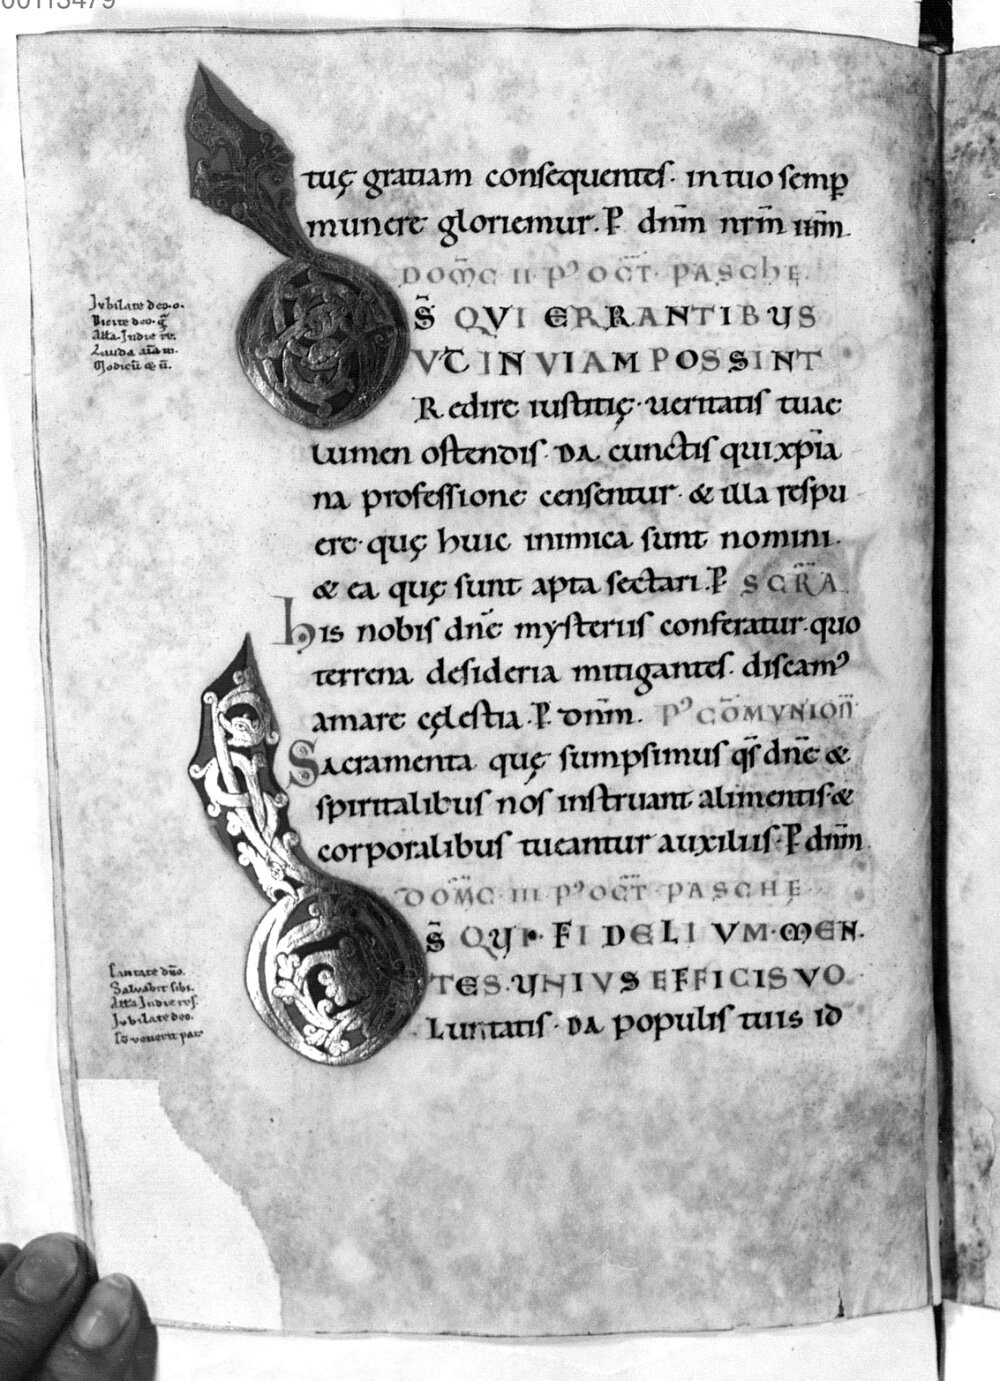 00113479
tuę gratiam consequentes. in tuo semp̱
munere gloriemur. P dnm̄ nrm̄ ih̄m
DOM̄C II Pꝰ OCT̄ PASCHĘ.
D S̄ QVI ERRANTIBVS
VT IN VIAM POSSINT
Redire iustitię. ueritatis tuae
lumen ostendis. DA cunctis qui xp̄ia
na professione censentur. & illa respu
ere. quę huic inimica sunt nomini.
& ea quę sunt apta sectari. P SCR̄A
His nobis dnē mysteriis conferatur. quo
terrena desideria mitigantes. discamꝰ
amare cęlestia. P dnm̄. Pꝰ CŌMVNION̄
Sacramenta quę sumpsimus qs̄ dnē &
spiritalibus nos instruant alimentis. &
corporalibus tueantur auxiliis. P dnm̄
DOM̄C III Pꝰ OCT̄ PASCHĘ
D S̄ QVI FIDELIVM MEN
TES. VNIVS EFFICIS VO
Luntatis. DA populis tuis id
Ivbilate deo. o.
Dicite deo. q̄
Atta. Indie re.
Lauda aīa m.
Modicū & ñ.
Cantate dn̄o.
Saluabit sibi.
Atta Indie res.
Ivbilate deo.
Cū venerit par